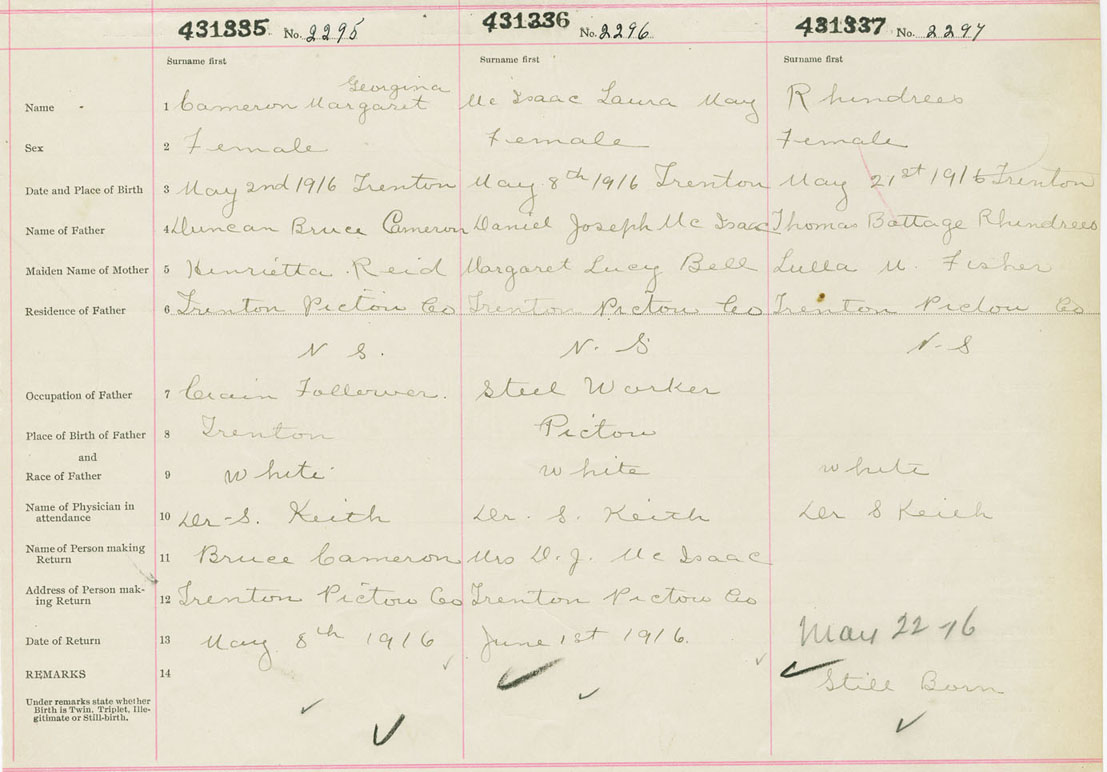 431335 No. 2295 431336 No. 2296 431337 No. 2297
Surname first Surname first Surname first
Georgina
Name 1 Cameron Margaret Mc Isaac Laura May Rhindrees
Sex 2 Female Female Female
Date and Place of Birth 3 May 2nd 1916 Trenton May 8th 1916 Trenton May 21st 1916 Trenton
Name of Father 4 Duncan Bruce Cameron Daniel Joseph Mc Isaac Thomas Battage Rhindrees
Maiden Name of Mother 5 Henrietta Reid Margaret Lucy Bell Lulla M. Fisher
Residence of Father 6 Trenton Pictou Co Trenton Pictou Co Trenton Pictou Co
N S. N. S N-S
Occupation of Father 7 Follower. Steel Worker
Place of Birth of Father 8 Trenton Pictou
and
Race of Father 9 White White White
Name of Physician in
attendance 10 Dr-S. Keith Dr. S. Keith Dr S Keith
Name of Person making
Return 11 Bruce Cameron Mrs D. J. Mc Isaac
Address of Person mak-
ing Return 12 Trenton Pictou Co Trenton Pictou Co
Date of Return 13 May 8th 1916 June 1st 1916. May 22-16
REMARKS 14 Still Born
Under remarks state whether
Birth is Twin, Triplet, Ille-
gitimate or Still-birth.